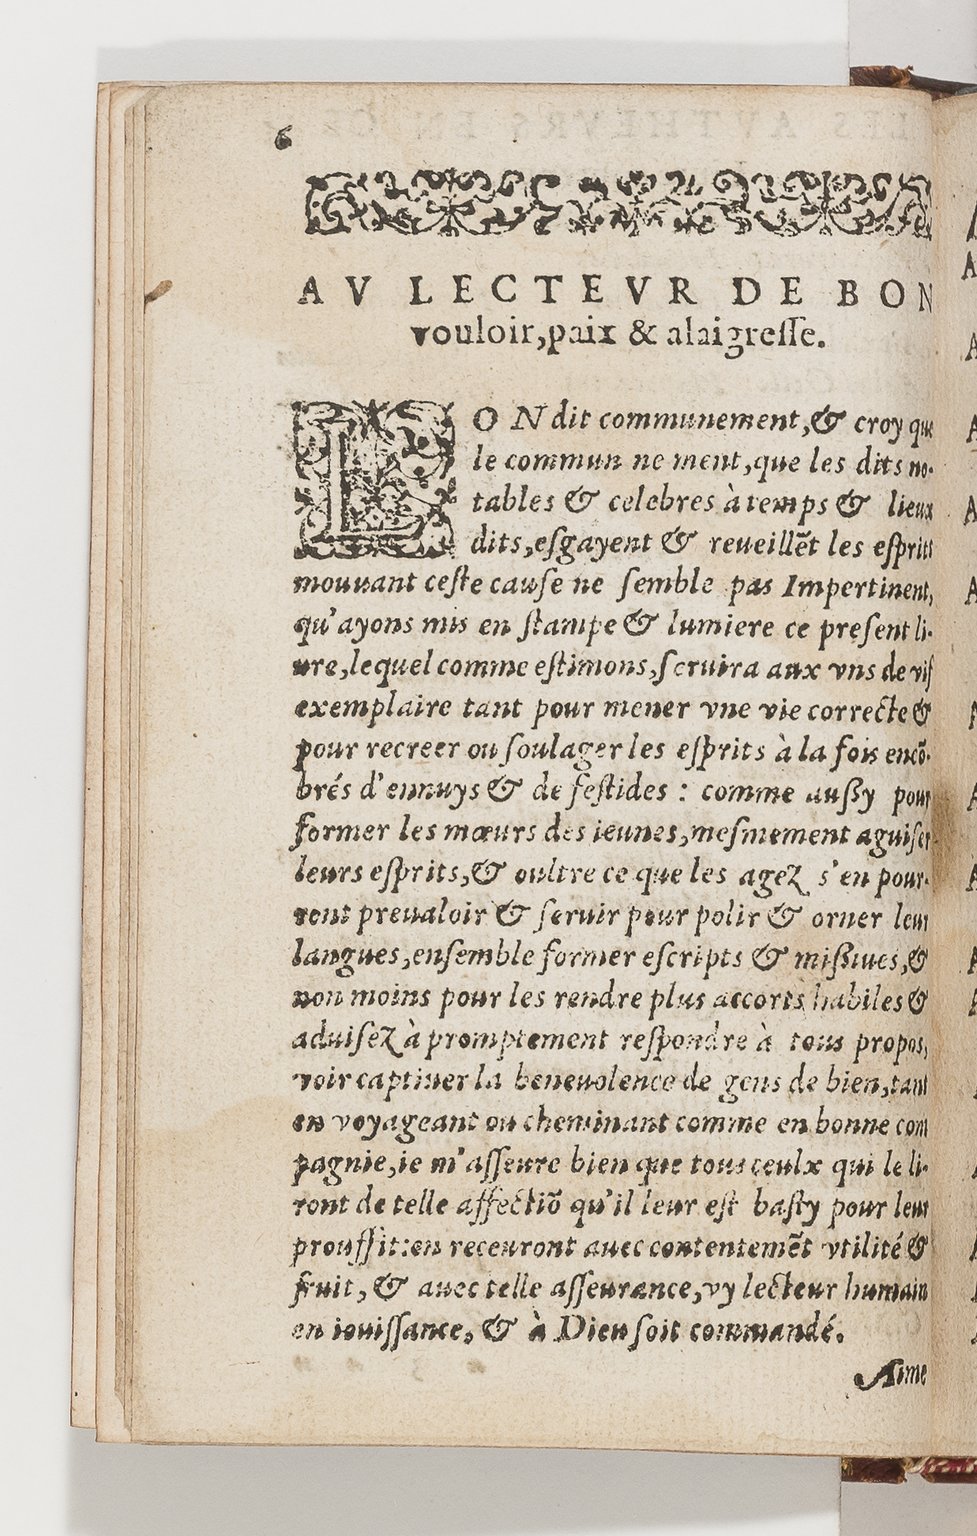 6
AV LECTEVR DE BON
vouloir,paix & alaigreſſe.
LON dit communement,& croy que
le commun ne ment,que les dits no-
tables & celebres à temps & lieux
dits,eſgayent & reueillẽt les eſprits
mouuant ceſte cauſe ne ſemble pas Impertinent,
qu'ayons mis en ſtampe & lumiere ce preſent li-
ure,lequel comme eſtimons,ſeruira aux vns de vif
exemplaire tant pour mener vne vie correcte &
pour recreer ou ſoulager les eſprits à la fois encõ-
brés d'ennuys & de feſtides : comme auſſy pour
former les mœurs des ieunes,meſmement aguiſer
leurs eſprits,& oultre ce que les agez s'en pour-
ront preualoir & ſeruir pour polir & orner leur
langues,enſemble former eſcripts & miſſiues,&
non moins pour les rendre plus accorts habiles &
aduiſez à promptement reſpondre à tous propos,
voir captiuer la beneuolence de gens de bien,tant
en voyageant ou cheminant comme en bonne com
pagnie,ie m'aſſeure bien que tous ceulx qui le li-
ront de telle affectiõ qu'il leur eſt baſty pour leur
prouffit:en receuront auec contentemẽt vtilité &
fruit, & auec telle aſſeurance,vy lecteur humain
en iouiſſance, & à Dieu ſoit commandé.
Aime